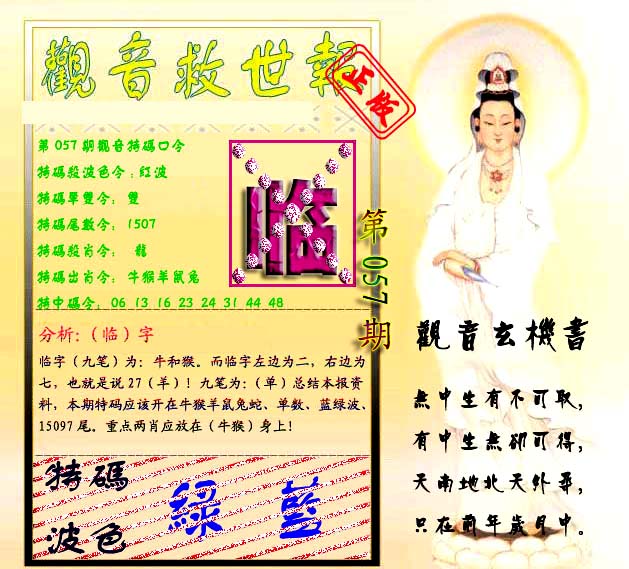 觀音救世報
正版
第057期觀音特碼口令
特碼殺波色令：紅波
特碼單雙令： 雙
特碼尾數令： 1507
特碼殺肖令： 龍
特碼出肖令： 牛猴羊鼠兔
特中碼令：06 13 16 23 24 31 44 48
临
第057期
分析：（临）字
临字（九笔）为：牛和猴。而临字左边为二，右边为
七，也就是说27（羊）！九笔为：（单）总结本报资
料，本期特码应该开在牛猴羊鼠兔蛇、单数、蓝绿波、
15097尾。重点两肖应放在（牛猴）身上！
特碼
波色
綠 藍
觀音玄機書
無中生有不可取，
有中生無卻可得，
天南地北天外尋，
只在前年歲月中。